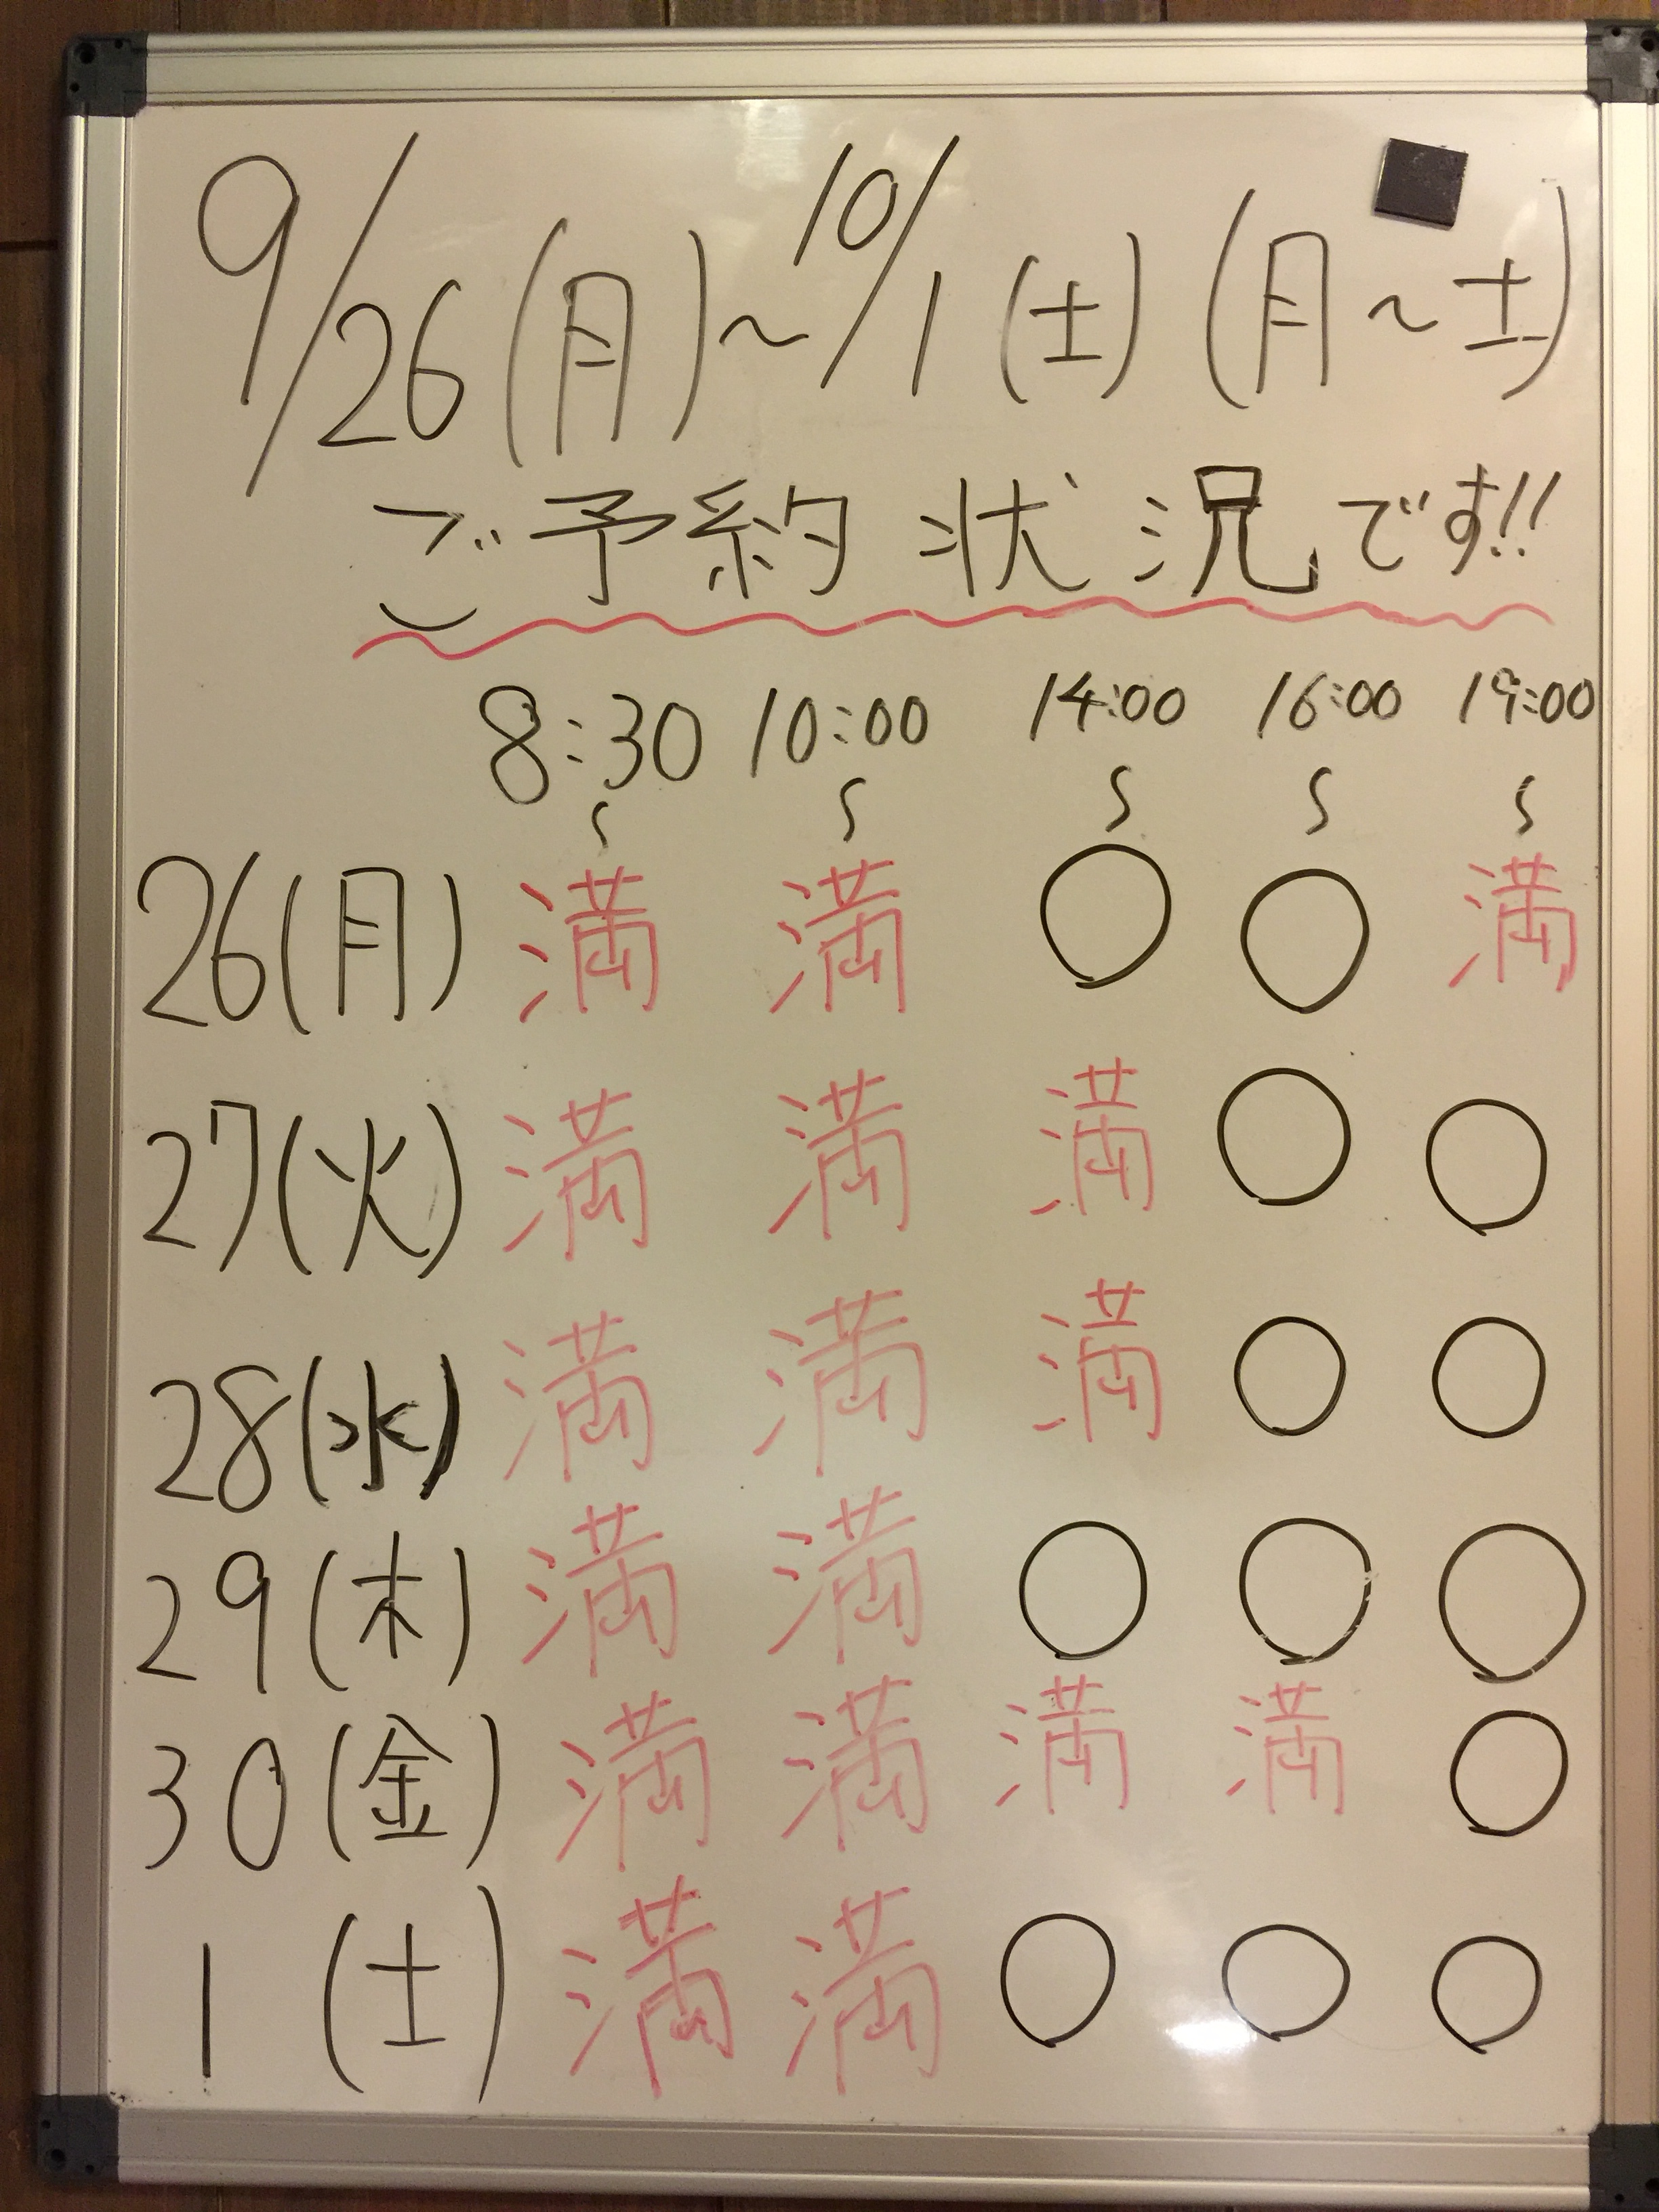 9/26(月)~10/1(土)(月~土)
ご予約状況です!!
8:30 10:00 14:00 16:00 19:00
~ ~ ~ ~ ~
26(月) 満 満 ○ ○ 満
27(火) 満 満 満 ○ ○
28(水) 満 満 満 ○ ○
29(木) 満 満 ○ ○ ○
30(金) 満 満 満 満 ○
1(土) 満 満 ○ ○ ○